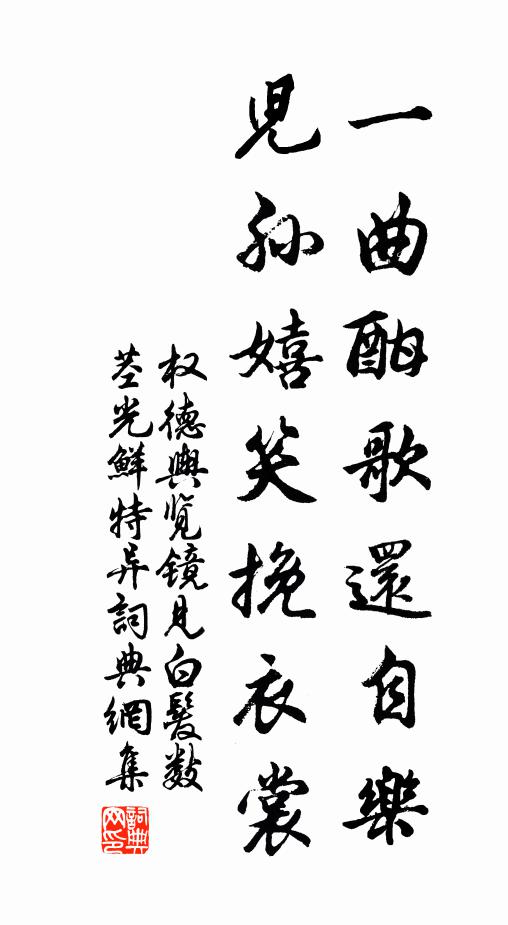 一曲酣歌還自樂
兒孫嬉笑挽衣裳
权德輿览镜见白髮数
茎光鮮特异詞典網集
詞典
网印